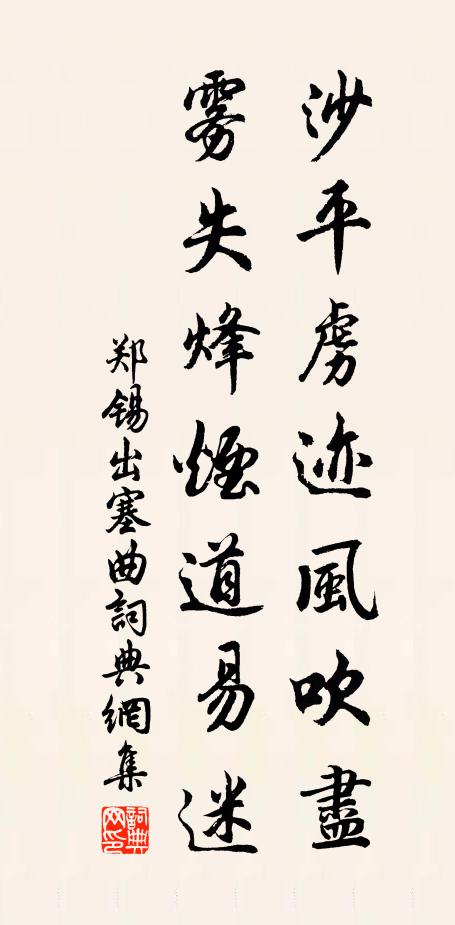 沙平虜迹風吹盡
雾失烽煙道易迷
郑锡出塞曲詞典網集
詞典網印